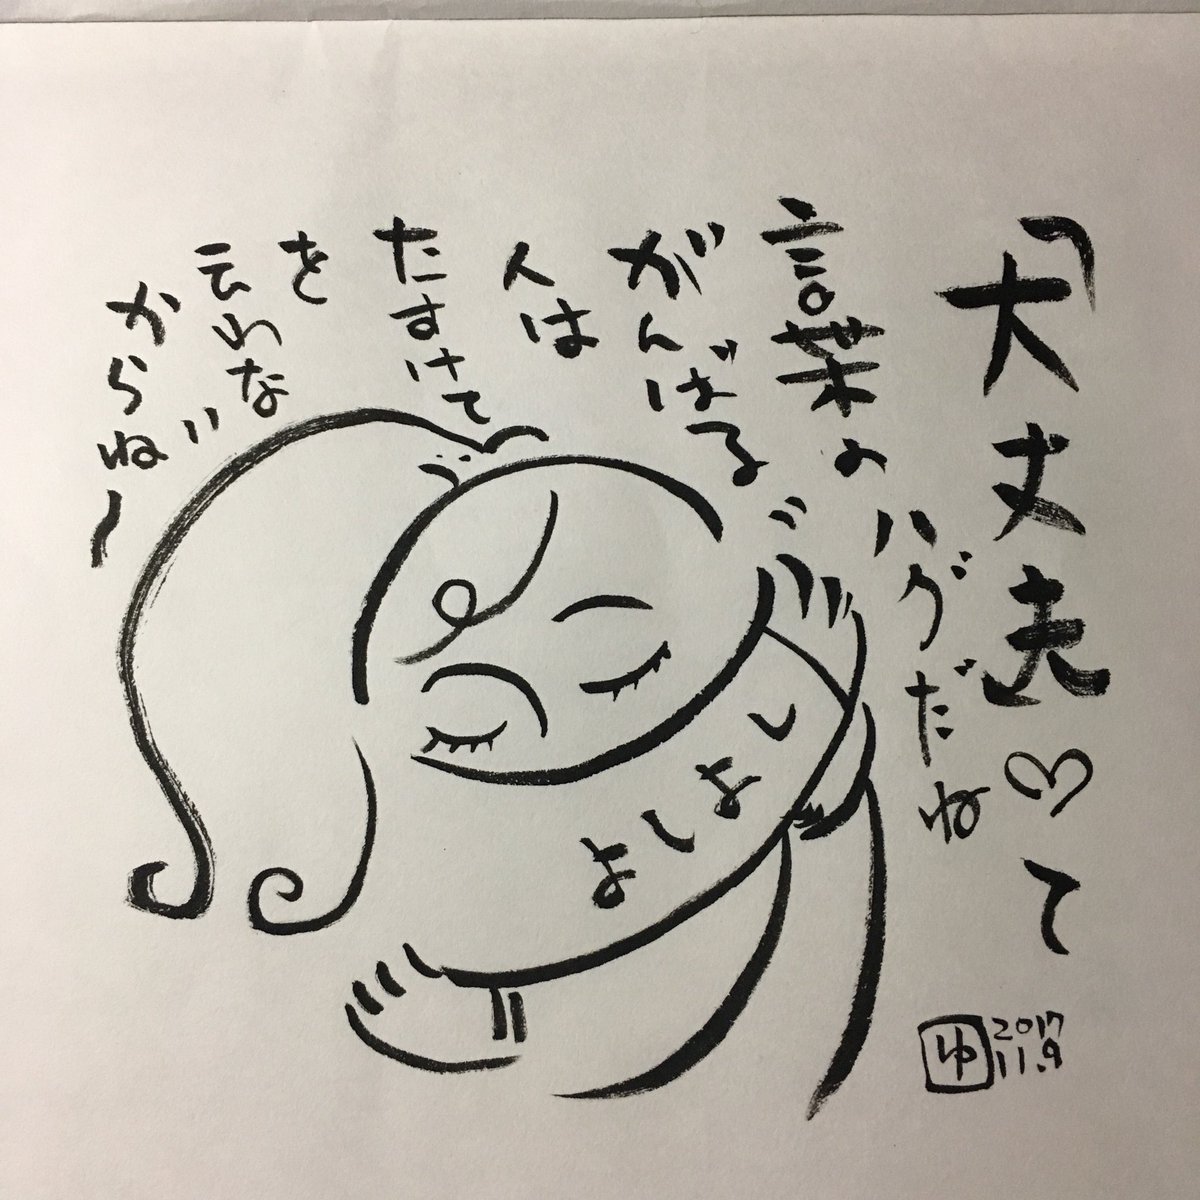 「大丈夫♡て
言葉のハグだね
がんばる
人は
たすけて
を
云わな
からね〜
よしよし
ゆ
2017
11.9